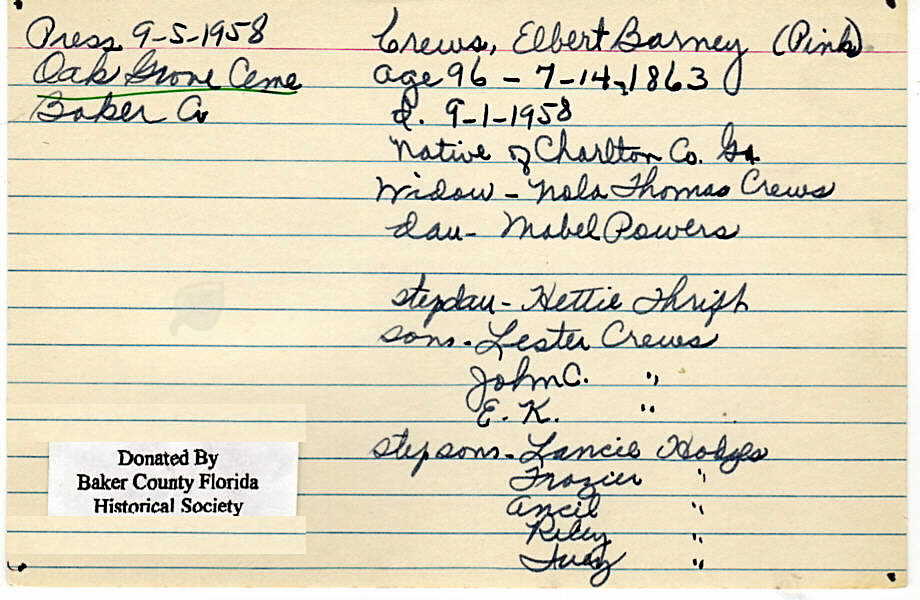 Press 9-5-1958
Oak Grove Ceme
Baker Co
Crews, Elbert Barney (Pink)
age 96 - 7-14-1863
d. 9-1-1958
native of Charlton Co. Ga
Widow - Nola Thomas Crews
dau - Mabel Powers
stepdau - Hettie Thrift
sons - Lester Crews
John C. "
E. K. "
stepsons - Lancie Hodges
Frazier "
Ancil "
Riley "
"
Donated By
Baker County Florida
Historical Society